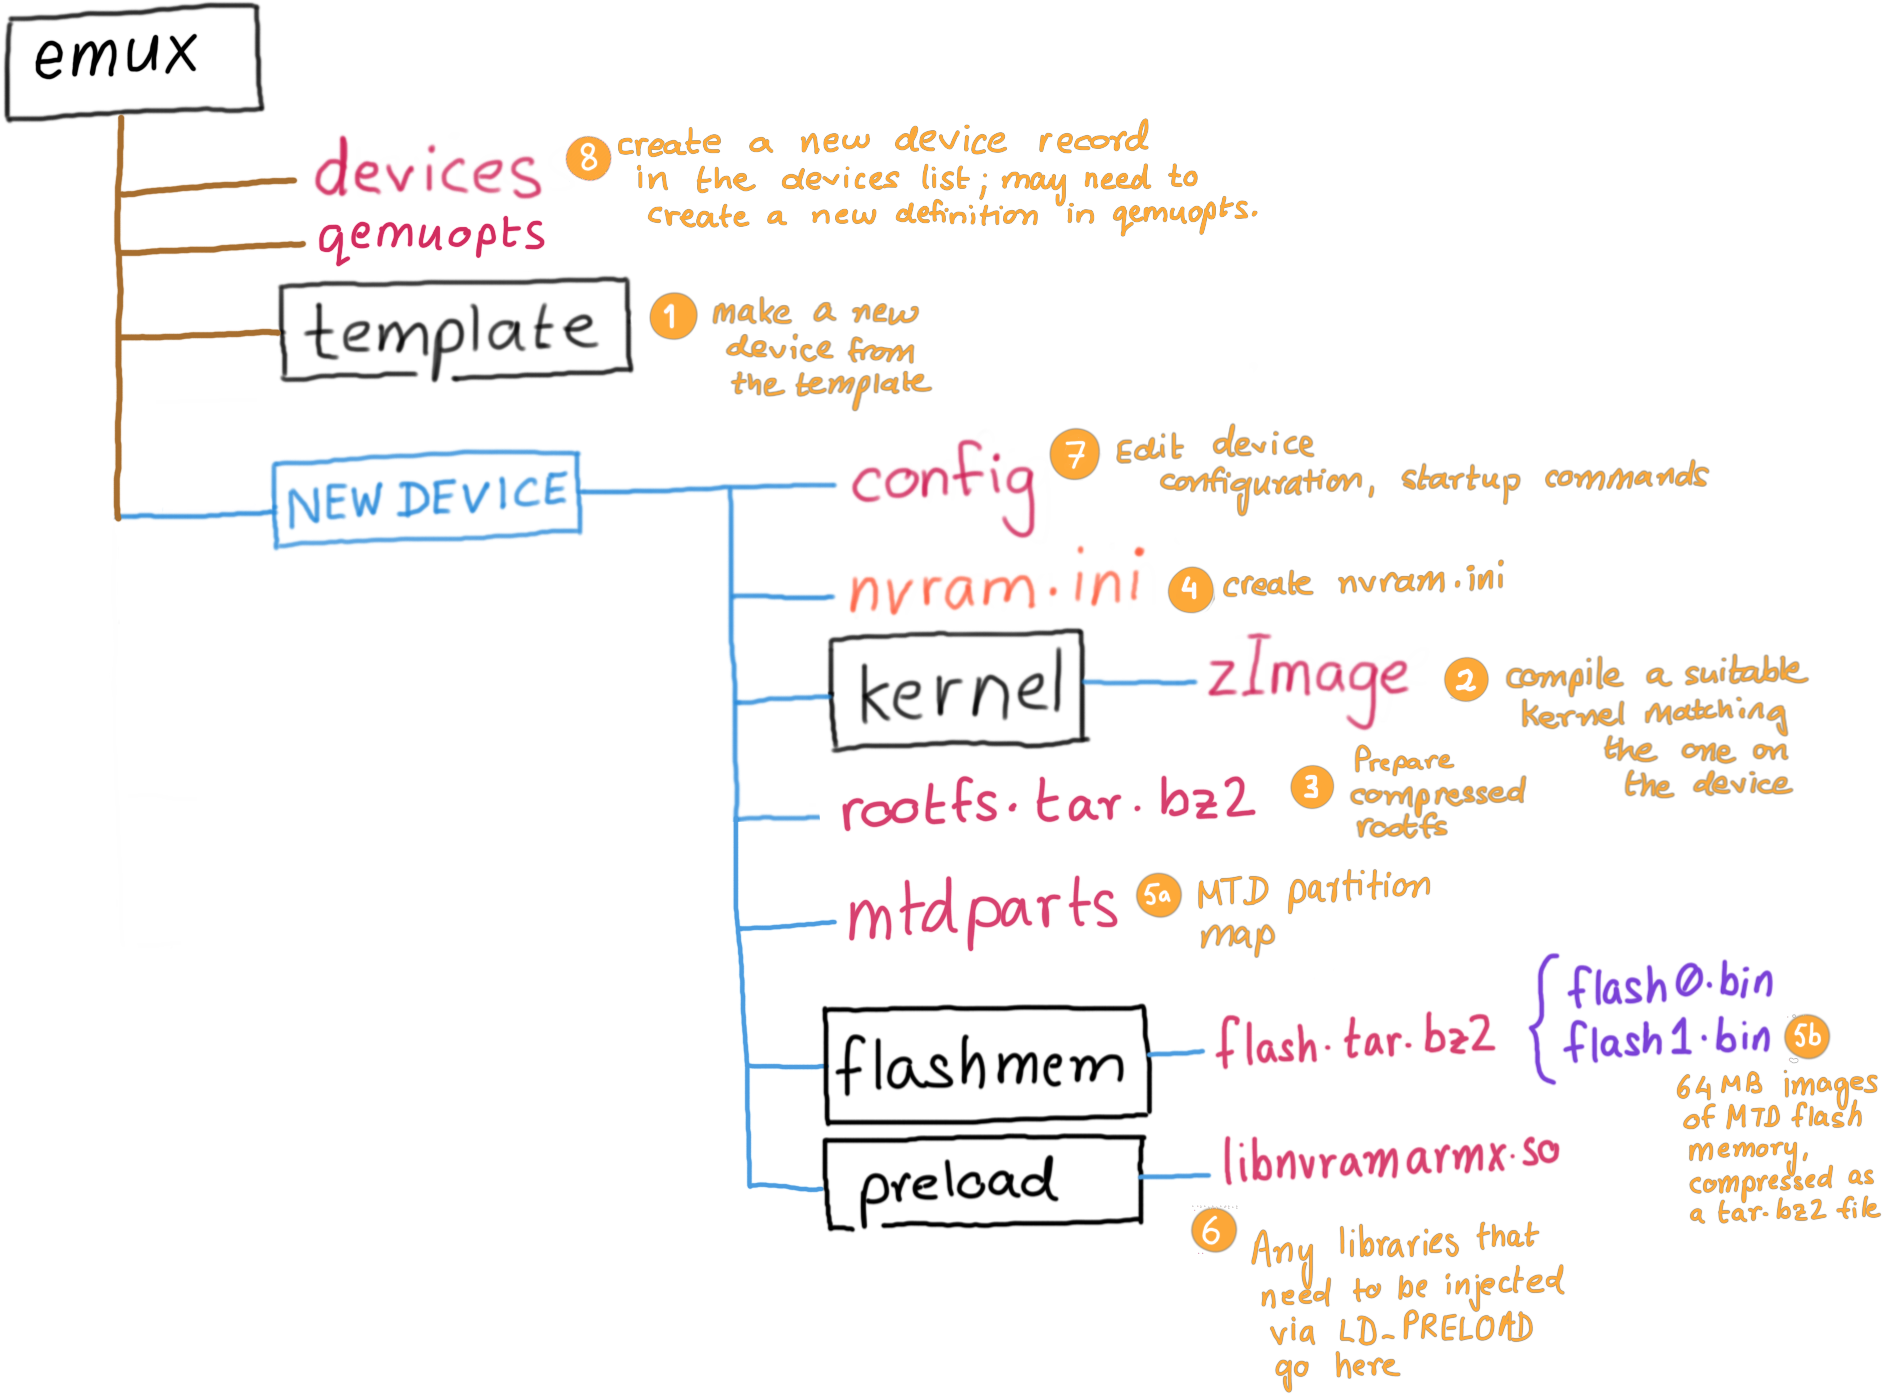 emux
devices
8
create a new device record
in the devices list; may need to
create a new definition in qemuopts.
qemuopts
template
1
make a new
device from
the template
NEW DEVICE
config
7
Edit device
configuration, startup commands
nvram.ini
4
create nvram.ini
kernel
zImage
2
compile a suitable
kernel matching
the one on
the device
rootfs.tar.bz2
3
Prepare
compressed
rootfs
mtdparts
5a
MTD partition
map
flashmem
flash.tar.bz2
flash0.bin
flash1.bin
5b
64MB images
of MTD flash
memory,
compressed as
a tar.bz2 file
preload
libnvramarmx.so
6
Any libraries that
need to be injected
via LD_PRELOAD
go here